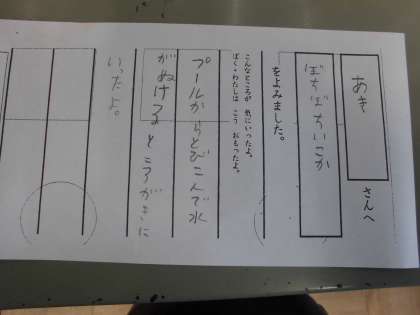 あき
さんへ
ぼちぼちいこか
をよみました。
こんなところが 気にいったよ。
ぼく・わたしは こう おもったよ。
プールからとびこんで水
がぬけるところがきに
いったよ。